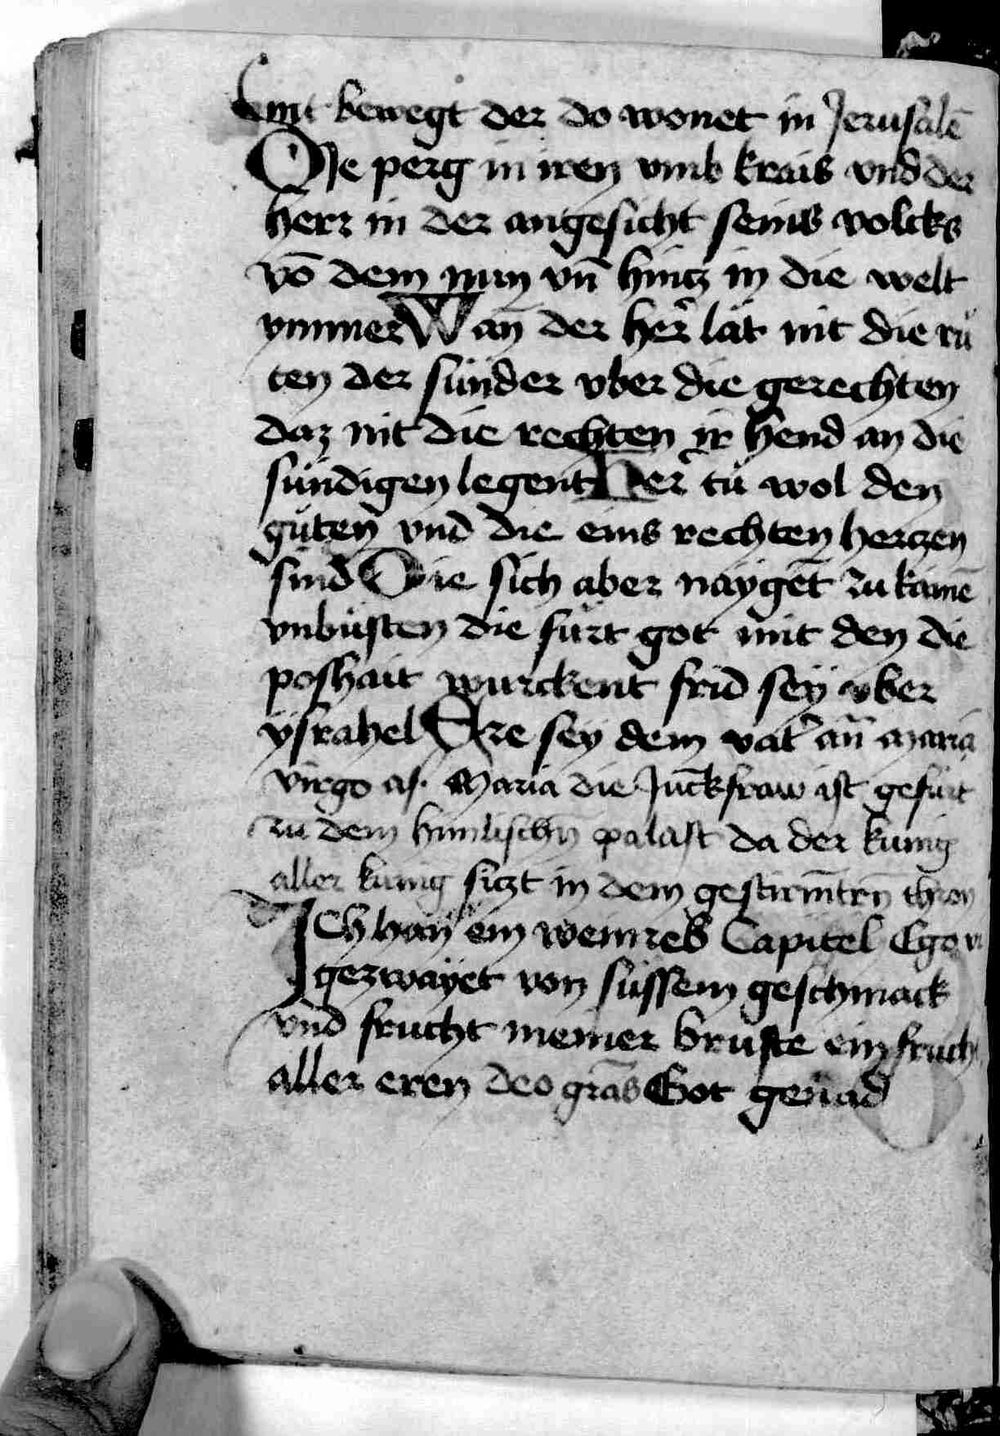 mit bewegt der do wonet in Jerusalē
Die perg in iren vmb krais vnd der
herr in der angesicht seins volcks
vō dem nun vn̄ hintz in die welt
ymmer Wan̄ der her̄ lät nit die rů
ten der sünder vber die gerechten
daz nit die rechten ir hend an die
sündigen legent Her̄ tů wol den
gůten vnd die eins rechten hertzen
sind Die sich aber nayget̄ zu
vnbüsten die fürt got mit den die
poshait wurckent frid sey vber
ysrahel Ere sey dem vat̾ an̄ Maria
virgo as. Maria die Junckfraw ist gefürt
zu dem himlischn̄ palast da der kunig
aller kunig siczt in dem gestirntn̄ thron
ICh han ein weinreb Capitel Ego
gezwayet von süssem geschmack
vnd frucht meiner bruste ein frucht
aller eren deo grās Got genad